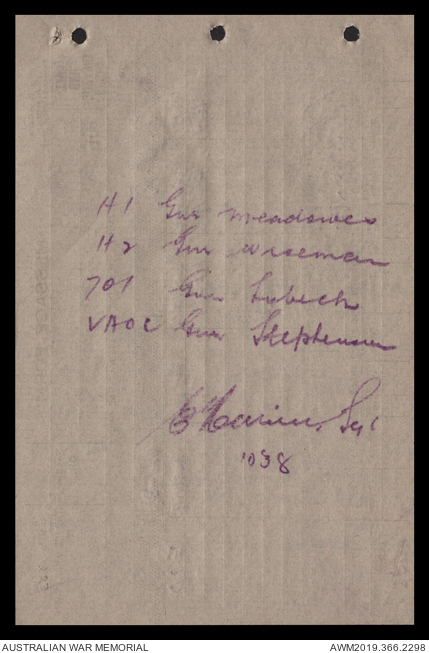 H1 Gnr Meadowes
H2 Gnr Wiseman
701 Gnr Lubech
VAOC Gnr Stephenson
Sgt
1038
AUSTRALIAN WAR MEMORIAL
AWM2019.366.2298